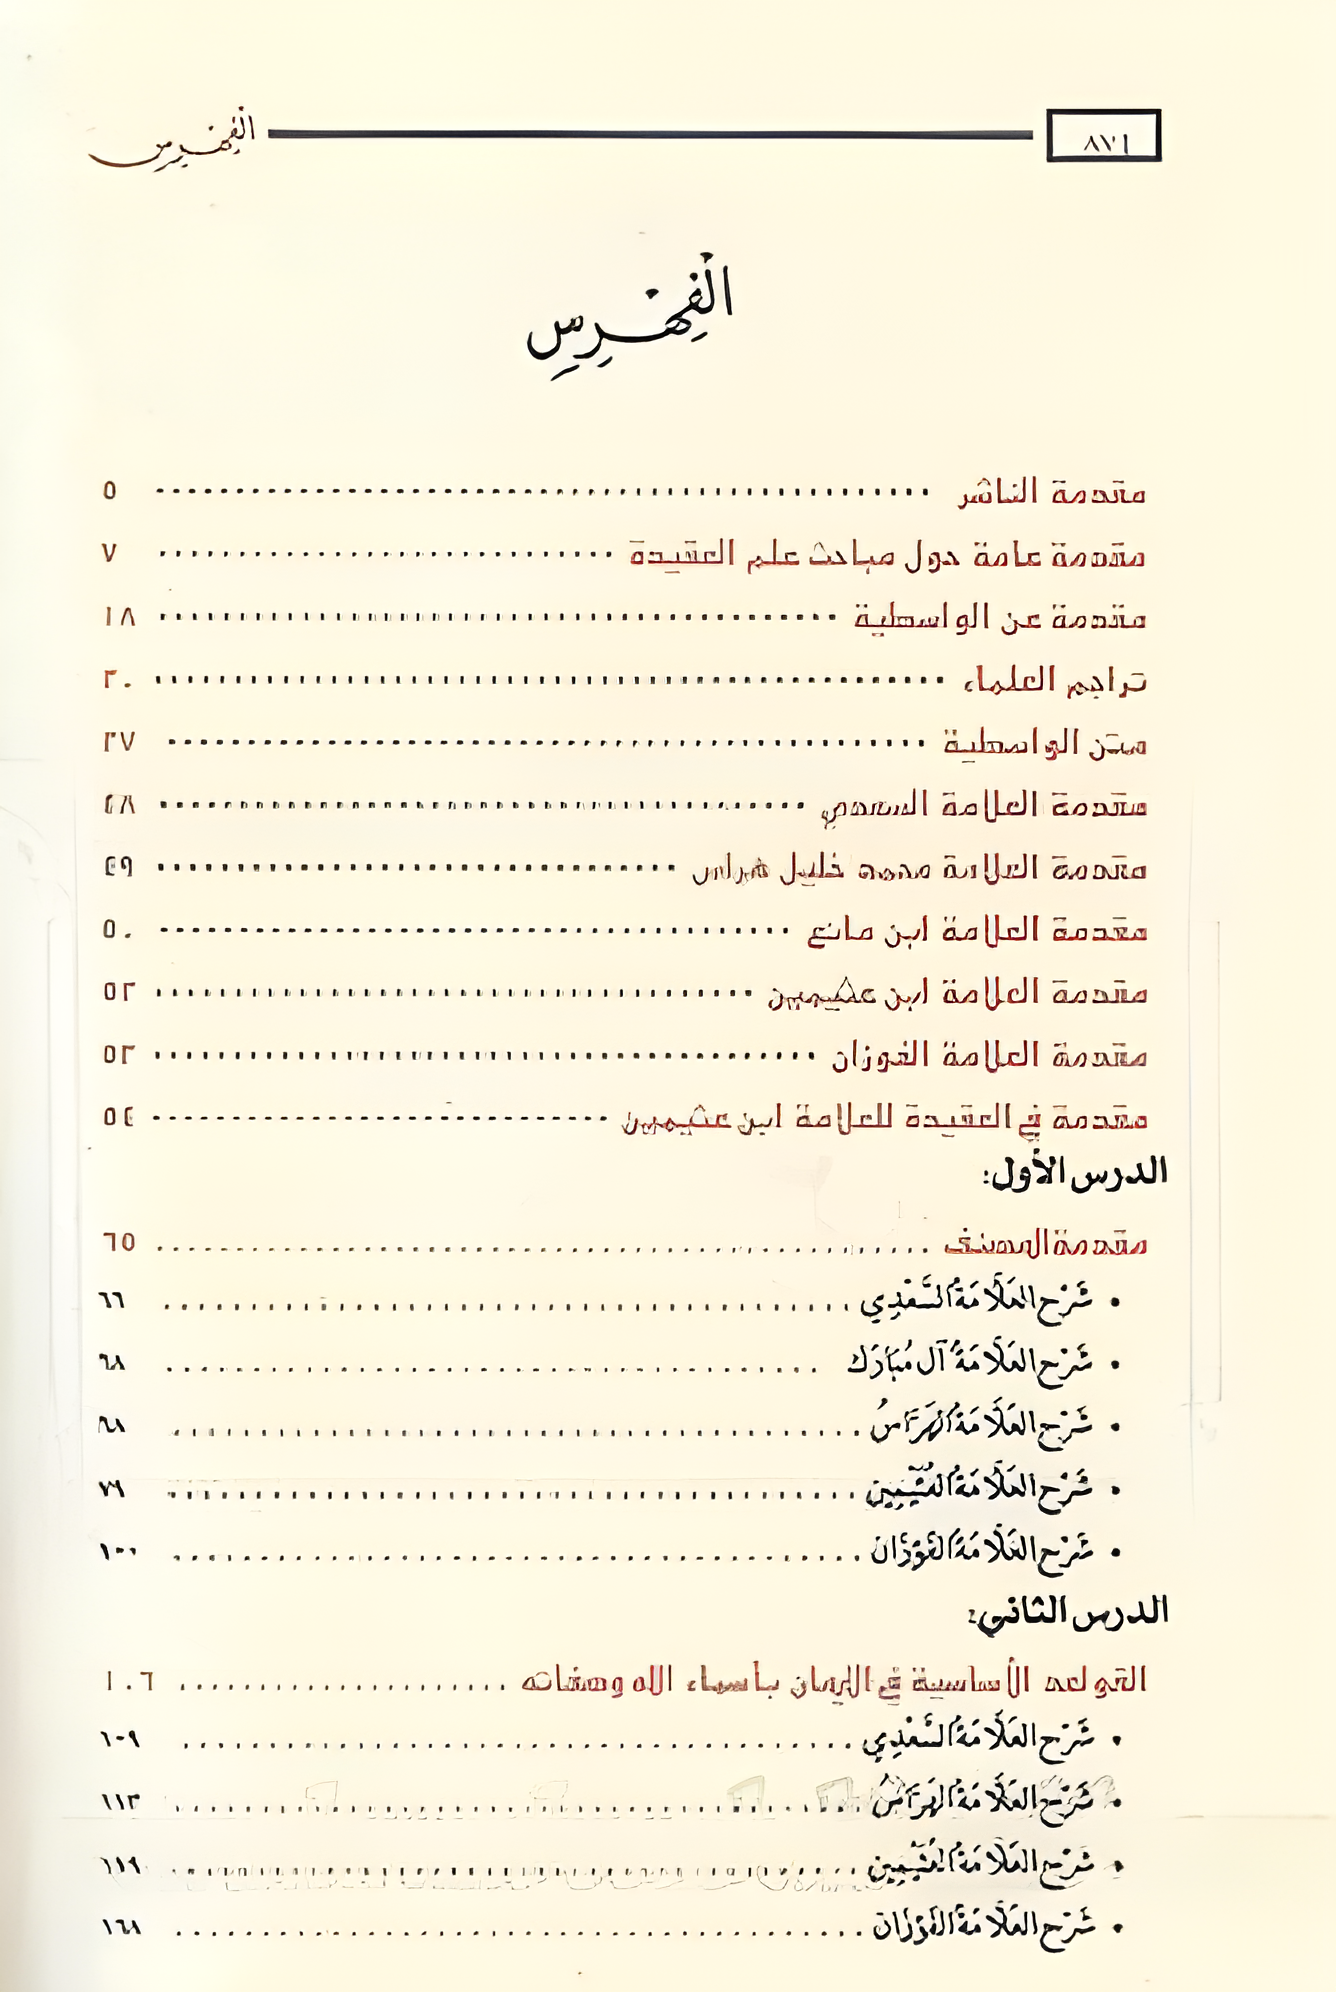 ٨٧٦ الْفِهْرِس
الْفِهْرِس
مقدمة الناشر ٥
مقدمة عامة حول مباحث علم العقيدة ٧
مقدمة عن الواسطية ١٨
تراجم العلماء
متن الواسطية
مقدمة العلامة السعدي ٤٨
مقدمة العلامة محمد خليل هراس ٤٩
مقدمة العلامة ابن مانع ٥٠
مقدمة العلامة ابن عثيمين ٥٢
مقدمة العلامة الفوزان
مقدمة في العقيدة للعلامة ابن عثيمين ٥٤
الدرس الأول:
مقدمة المصنف ٦٥
• شَرْح العَلَّامَةُ السَّعْدِي ٦٦
• شَرْح العَلَّامَةُ آل مُبَارَك ٦٨
• شَرْح العَلَّامَةُ الهَرَّاسُ ٦٨
• شَرْح العَلَّامَةُ العُثَيْمِين ٧٩
• شَرْح العَلَّامَةُ الفَوْزَان ١٠٠
الدرس الثاني:
القواعد الأساسية في الإيمان بأسماء الله وصفاته ١٠٦
• شَرْح العَلَّامَةُ السَّعْدِي ١٠٩
• شَرْح العَلَّامَةُ الهَرَّاسُ ١١٣
• شَرْح العَلَّامَةُ العُثَيْمِين ١١٩
• شَرْح العَلَّامَةُ الفَوْزَان ١٦٨